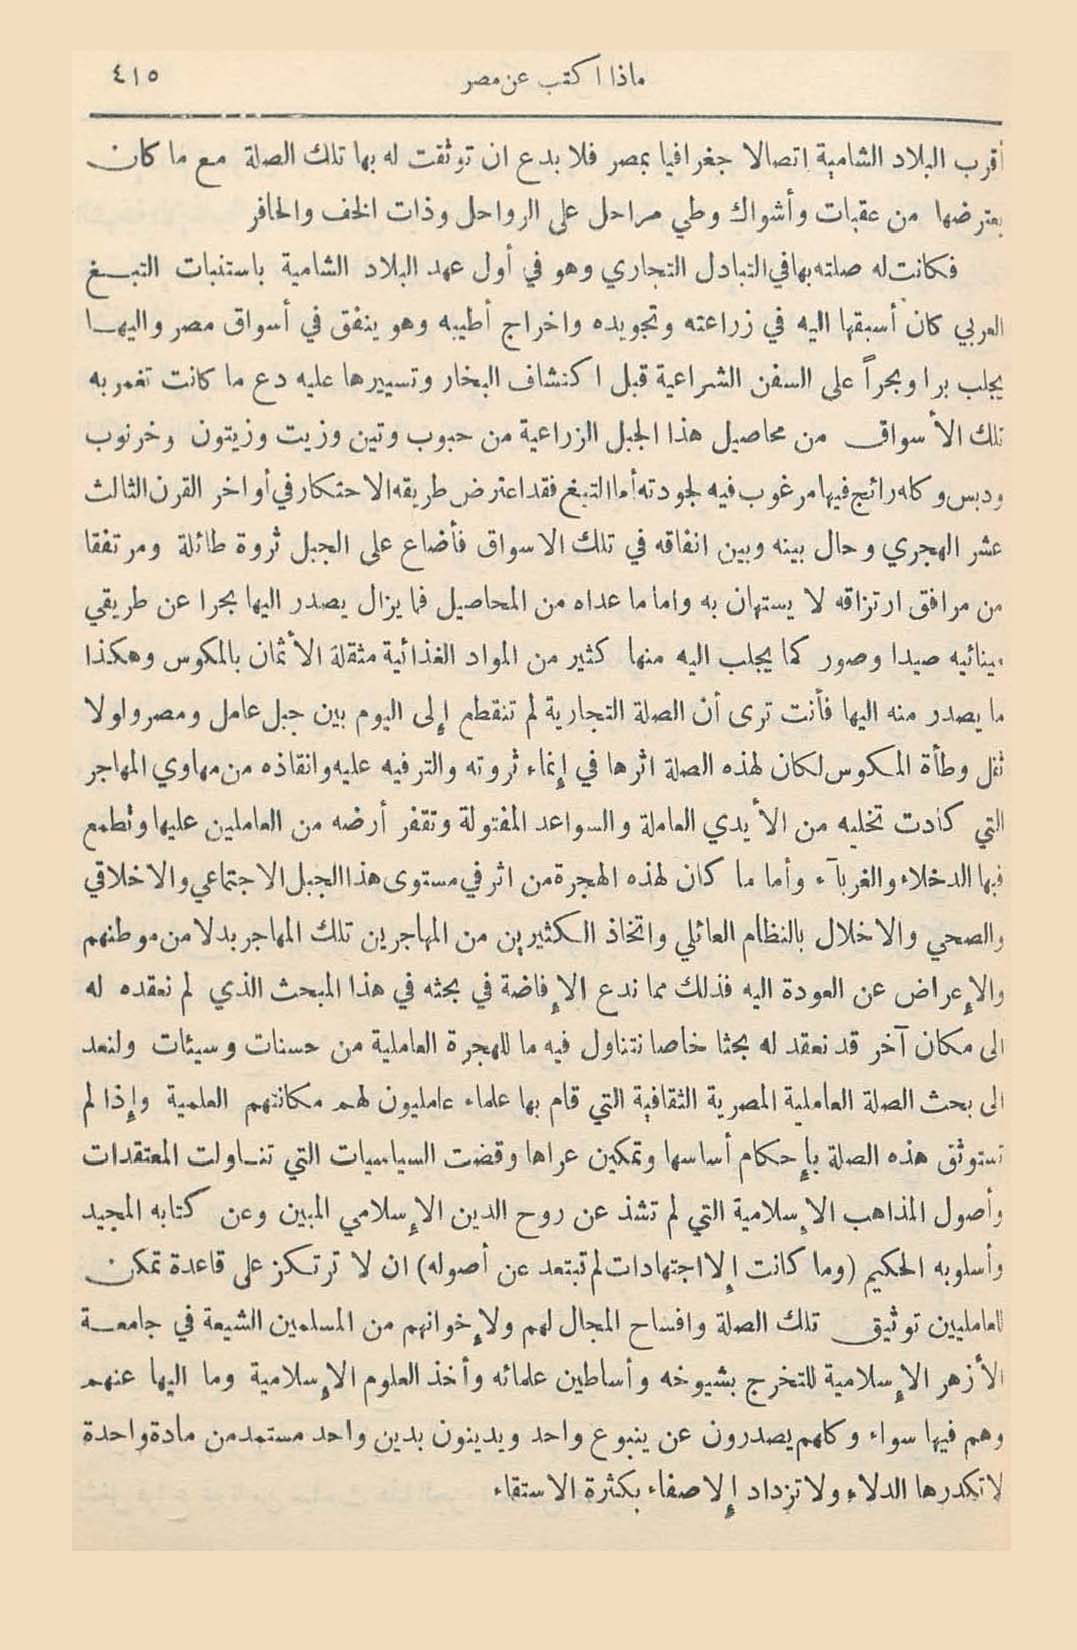 ماذا اكتب عن مصر ٤١٥
أقرب البلاد الشامية اتصالا جغرافيا بمصر فلا بدع ان توثقت له بها تلك الصلة مع ما كان
يعترضها من عقبات وأشواك وطي مراحل على الرواحل وذات الخف والحافر
فكانت له صلته بها في التبادل التجاري وهو في أول عهد البلاد الشامية باستنبات التبغ
العربي كان أسبقها اليه في زراعته وتجويده واخراج أطيبه وهو ينفق في أسواق مصر واليها
يجلب برا وبحراً على السفن الشراعية قبل اكتشاف البخار وتسييرها عليه دع ما كانت تغمر به
تلك الأسواق من محاصيل هذا الجبل الزراعية من حبوب وتين وزيت وزيتون وخرنوب
ودبس وكله رائج فيها مرغوب فيه لجودته أما التبغ فقد اعترض طريقه الاحتكار في أواخر القرن الثالث
عشر الهجري وحال بينه وبين انفاقه في تلك الاسواق فأضاع على الجبل ثروة طائلة ومرتفقا
من مرافق ارتزاقه لا يستهان به واما ما عداه من المحاصيل فما يزال يصدر اليها بحرا عن طريقي
مينائيه صيدا وصور كما يجلب اليه منها كثير من المواد الغذائية مثقلة الأثمان بالمكوس وهكذا
ما يصدر منه اليها فأنت ترى أن الصلة التجارية لم تنقطع إلى اليوم بين جبل عامل ومصر ولولا
ثقل وطأة المكوس لكان لهذه الصلة اثرها في إنماء ثروته والترفيه عليه وانقاذه من مهاوي المهاجر
التي كادت تخليه من الأيدي العاملة والسواعد المفتولة وتقفر أرضه من العاملين عليها وتطمع
فيها الدخلاء والغربآء وأما ما كان لهذه الهجرة من اثر في مستوى هذا الجبل الاجتماعي والاخلاقي
والصحي والاخلال بالنظام العائلي واتخاذ الكثيرين من المهاجرين تلك المهاجر بدلا من موطنهم
والإعراض عن العودة اليه فذلك مما ندع الإفاضة في بحثه في هذا المبحث الذي لم نعقده له
الى مكان آخر قد نعقد له بحثا خاصا نتناول فيه ما للهجرة العاملية من حسنات وسيئات ولنعد
الى بحث الصلة العاملية المصرية الثقافية التي قام بها علماء عامليون لهم مكانتهم العلمية وإذا لم
تستوثق هذه الصلة بإحكام أساسها وتمكين عراها وقضت السياسيات التي تناولت المعتقدات
وأصول المذاهب الإسلامية التي لم تشذ عن روح الدين الإسلامي المبين وعن كتابه المجيد
وأسلوبه الحكيم (وما كانت إلا اجتهادات لم تبتعد عن أصوله) ان لا ترتكز على قاعدة تمكن
للعامليين توثيق تلك الصلة وافساح المجال لهم ولإخوانهم من المسلمين الشيعة في جامعة
الأزهر الإسلامية للتخرج بشيوخه وأساطين علمائه وأخذ العلوم الإسلامية وما اليها عنهم
وهم فيها سواء وكلهم يصدرون عن ينبوع واحد ويدينون بدين واحد مستمد من مادة واحدة
لا تكدرها الدلاء ولا تزداد إلا صفاء بكثرة الاستقاء